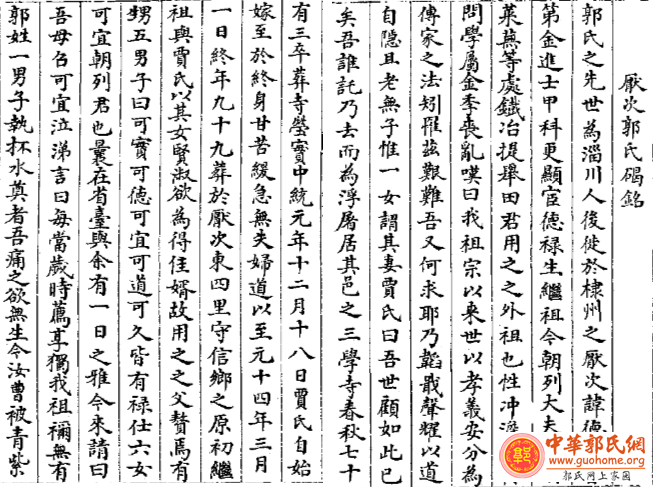 厭次郭氏碣銘
郭氏之先世為淄川人後徙於棣州之厭次諱德
第金進士甲科更顯宦德祿生繼祖今朝列大夫
萊蕪等處鐵冶提舉田君用之之外祖也性冲澹
問學屬金季喪亂嘆曰我祖宗以來世以孝義安分為
傳家之法矧罹茲艱難吾又何求耶乃韜戢聲耀以道
自隱且老無子惟一女謂其妻賈氏曰吾世顧如此已
矣吾誰託乃去而為浮屠居其邑之三學寺春秋七十
有三卒葬寺塋實中統元年十二月十八日賈氏自始
嫁至於終身甘苦緩急無失婦道以至元十四年三月
一日終年九十九葬於厭次東四里守信鄉之原初繼
祖與賈氏以其女賢淑欲為得佳婿故用之之父贅焉有
甥五男子曰可實可德可宜可道可久皆有祿仕六女
可宜朝列君也曩在省臺與余有一日之雅今來請曰
吾母召可宜泣涕言曰每當歲時薦享獨我祖禰無有
郭姓一男子執杯水奠者吾痛之欲無生今汝曹被青紫
中華郭氏網
www.guohome.org
郭氏网上家园